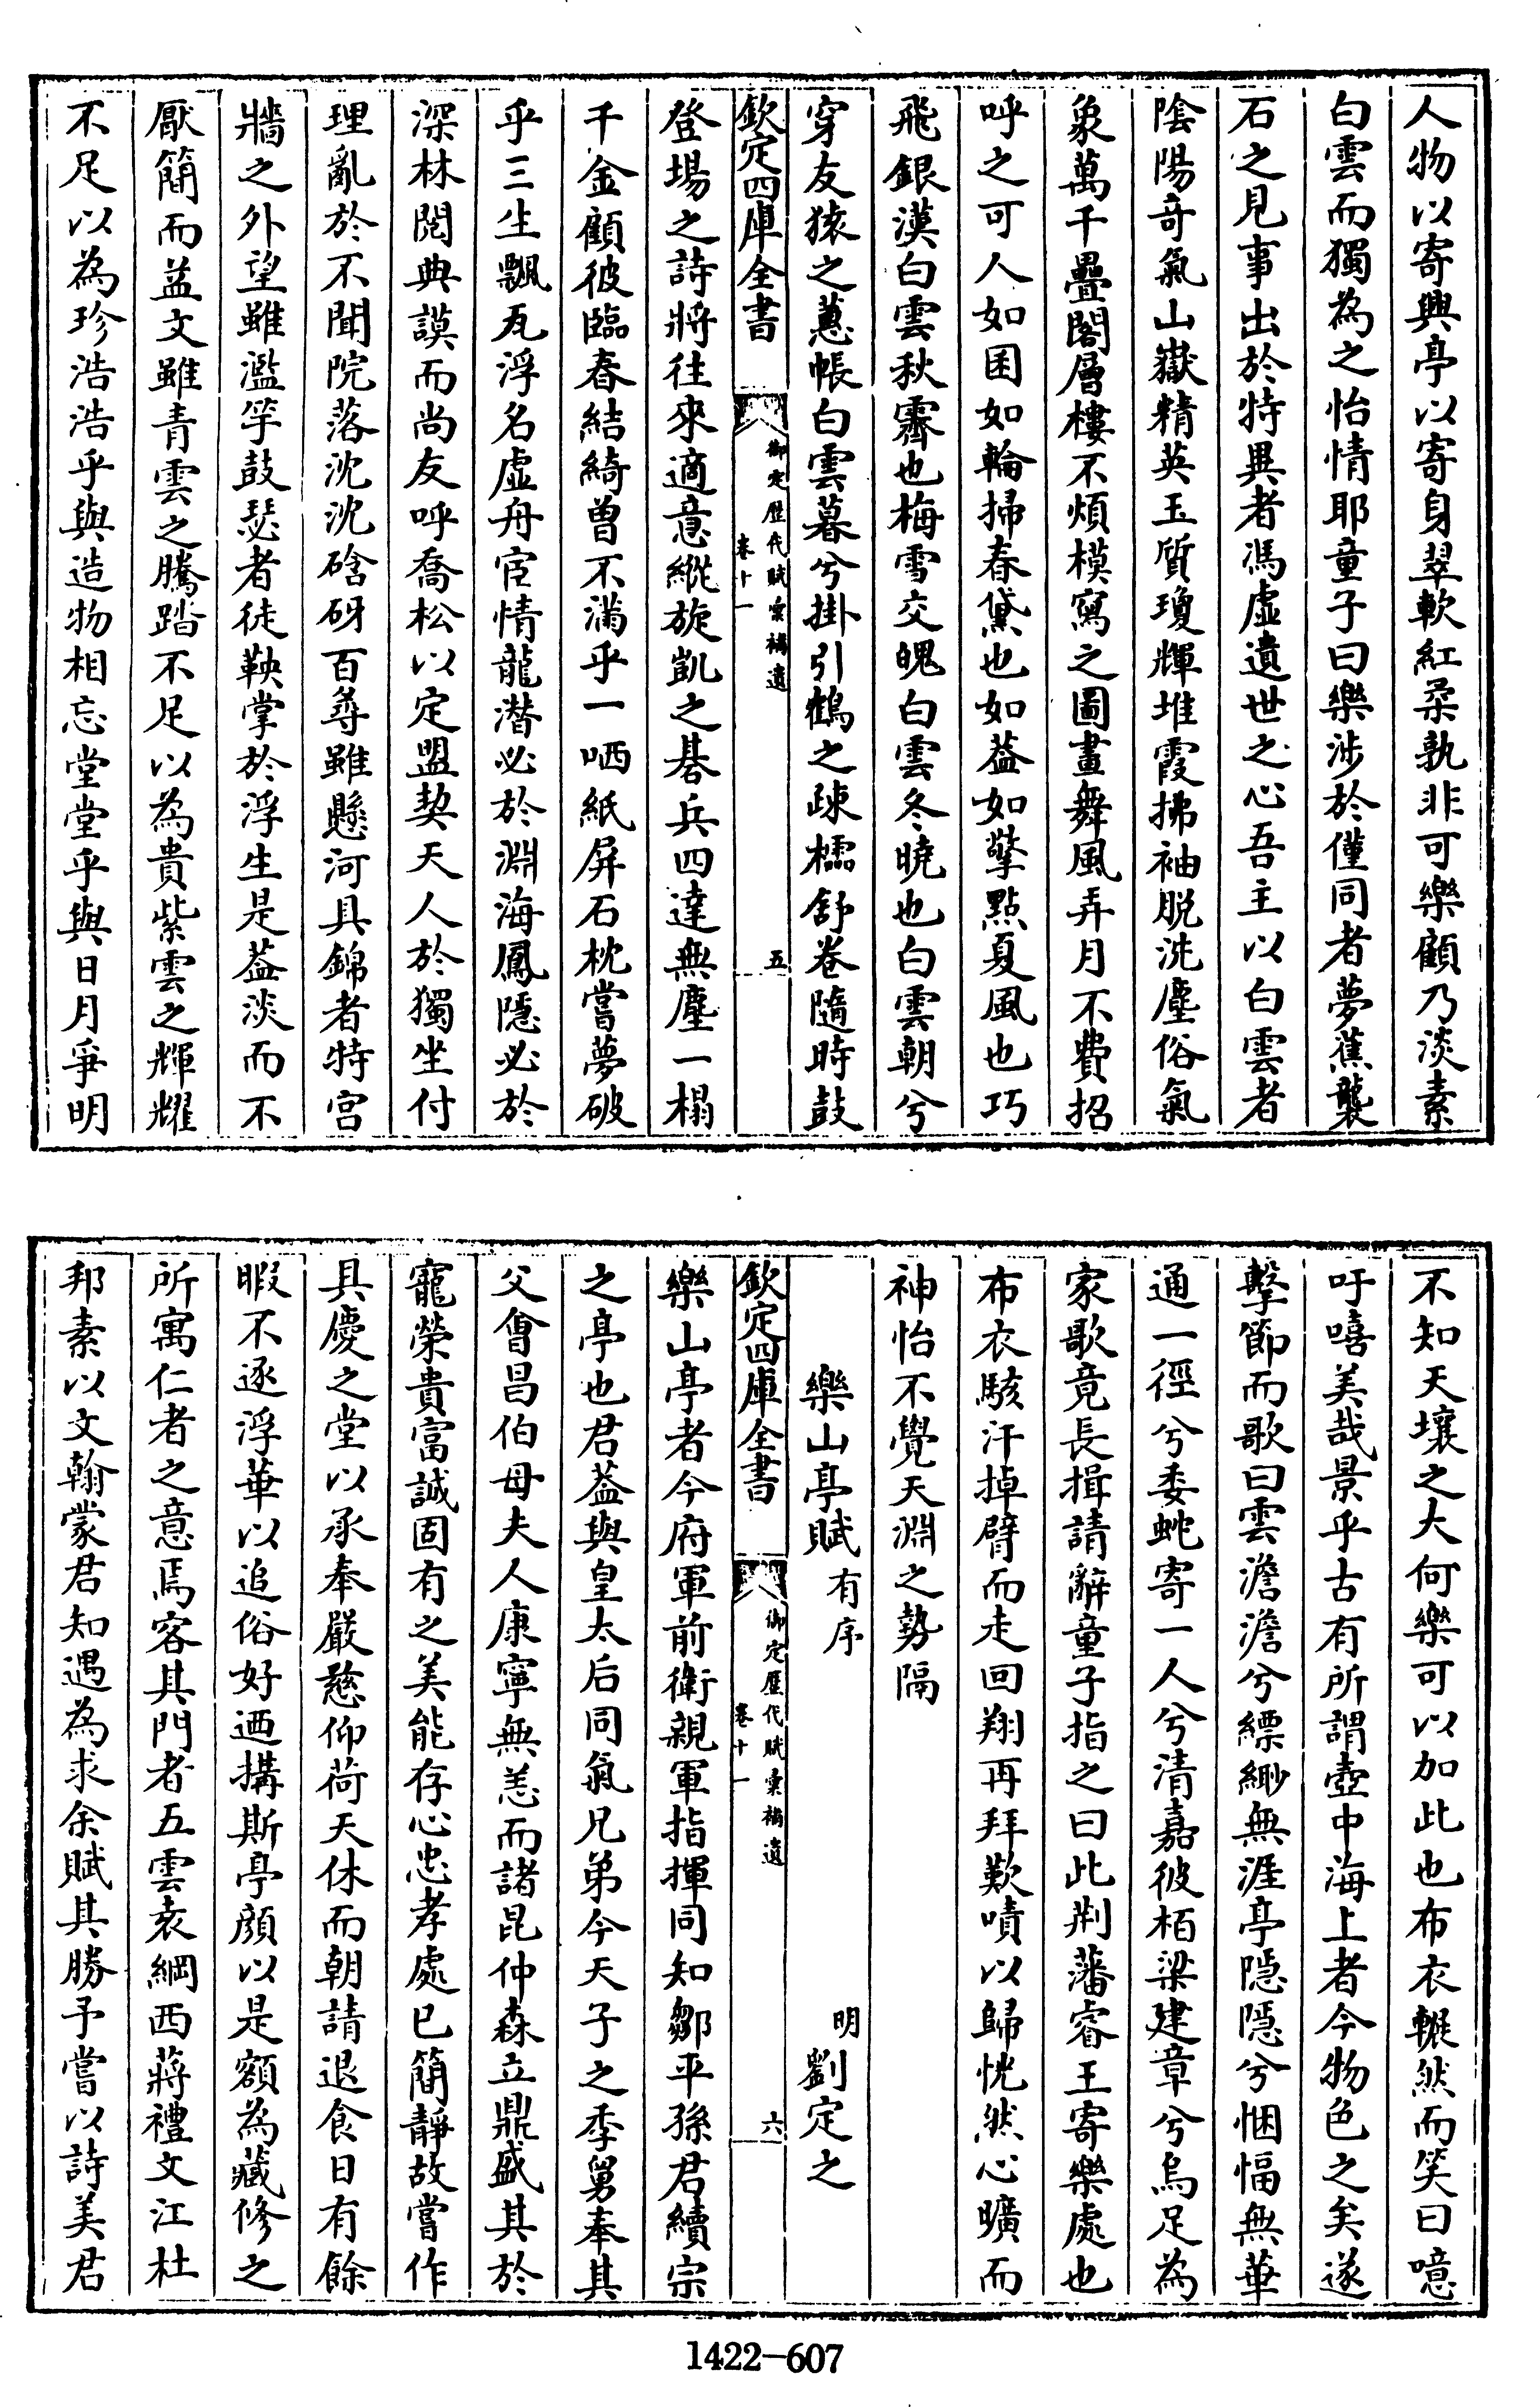 人物以寄興亭以寄身翠軟紅柔孰非可樂顧乃淡素
白雲而獨為之怡情耶童子曰樂涉於僅同者夢蕉襲
石之見事出於特異者馮虛遺世之心吾主以白雲者
陰陽奇氣山嶽精英玉質瓊輝堆霞拂袖脱洗塵俗氣
象萬千疊閣層樓不煩模寫之圖畫舞風弄月不費招
呼之可人如囷如輪掃春黛也如葢如擎點夏風也巧
飛銀漢白雲秋霽也梅雪交槐白雲冬曉也白雲朝兮
穿友猿之蕙帳白雲暮兮掛引鶴之疎櫺舒卷隨時鼓
欽定四庫全書
御定歷代賦彙補遺
卷十一
五
登場之詩將往來適意縱旋凱之碁兵四達無塵一榻
千金顧彼臨春結綺曾不滿乎一哂紙屏石枕嘗夢破
乎三生飄瓦浮名虛舟宦情龍潛必於淵海鳳隱必於
深林閱典謨而尚友呼喬松以定盟契天人於獨坐付
理亂於不聞院落沈沈硞砑百尋雖懸河具錦者特宮
牆之外望雖濫竽鼓瑟者徒鞅掌於浮生是葢淡而不
厭簡而益文雖青雲之騰踏不足以為貴紫雲之輝耀
不足以為珍浩浩乎與造物相忘堂堂乎與日月爭明
不知天壤之大何樂可以加此也布衣輾然而笑曰噫
吁嘻美哉景乎古有所謂壺中海上者今物色之矣遂
擊節而歌曰雲澹澹兮縹緲無涯亭隱隱兮悃愊無華
通一徑兮委蛇寄一人兮清嘉彼栢梁建章兮烏足為
家歌竟長揖請辭童子指之曰此荆藩睿王寄樂處也
布衣駭汗掉臂而走回翔再拜歎嘖以歸恍然心曠而
神怡不覺天淵之勢隔
樂山亭賦有序
明劉定之
欽定四庫全書
御定歷代賦彙補遺
卷十一
六
樂山亭者今府軍前衛親軍指揮同知鄒平孫君續宗
之亭也君葢與皇太后同氣兄弟今天子之季舅奉其
父會昌伯母夫人康寧無恙而諸昆仲森立鼎盛其於
寵榮貴富誠固有之美能存心忠孝處已簡靜故嘗作
具慶之堂以承奉嚴慈仰荷天休而朝請退食日有餘
暇不逐浮華以追俗好迺搆斯亭顔以是額為藏修之
所寓仁者之意焉客其門者五雲袁綱西蔣禮文江杜
邦素以文翰蒙君知遇為求余賦其勝予嘗以詩美君
1422—607